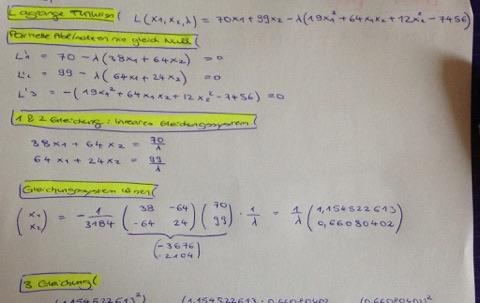 Lagrange Funktion L(x₁,x₂,λ) = 70x₁ + 99x₂ - λ(19x₁² + 64x₁x₂ + 12x₂² - 7456)
Partielle Ableitungen gleich Null
L'₁ = 70 - λ(38x₁ + 64x₂) = 0
L'₂ = 99 - λ(64x₁ + 24x₂) = 0
L'₃ = -(19x₁² + 64x₁x₂ + 12x₂² - 7456) = 0
1 & 2 Gleichung: lineares Gleichungssystem
38x₁ + 64x₂ = 70/λ
64x₁ + 24x₂ = 99/λ
Gleichungssystem lösen
(x₁ x₂) = -1/3184 (38 -64 -64 24) (70 99) · 1/λ = 1/λ (1,154522613 0,66080402)
(-3676 -2104)
3 Gleichung